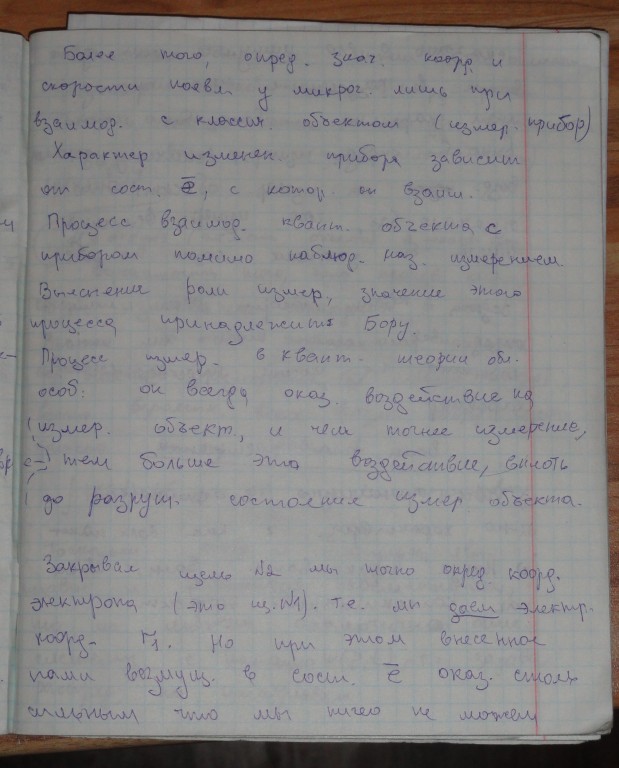 Более того, опред. знач. коорд. и
скорости появл. у микроч. лишь при
взаимод. с классич. объектом (измер. прибор)
Характер изменен. прибора зависит
от сост. ē, с котор. он взаим.
Процесс взаимод. квант. объекта с
прибором помимо наблюд. наз. измерением
Выяснение роли измер., значение этого
процесса принадлежит Бору.
Процесс измер. в квант. теории обл.
особ: он всегда оказ. воздействие на
измер. объект, и чем точнее измерение,
тем больше это воздействие, вплоть
до разруш. состояния измер. объекта.
Закрывая щель №2 мы точно опред. коорд.
электрона (это щ. №1). т.е. мы даем электр.
коорд. r₁. Но при этом внесенное
нами возмущ. в сост. ē оказ. столь
сильным что мы ничего не можем